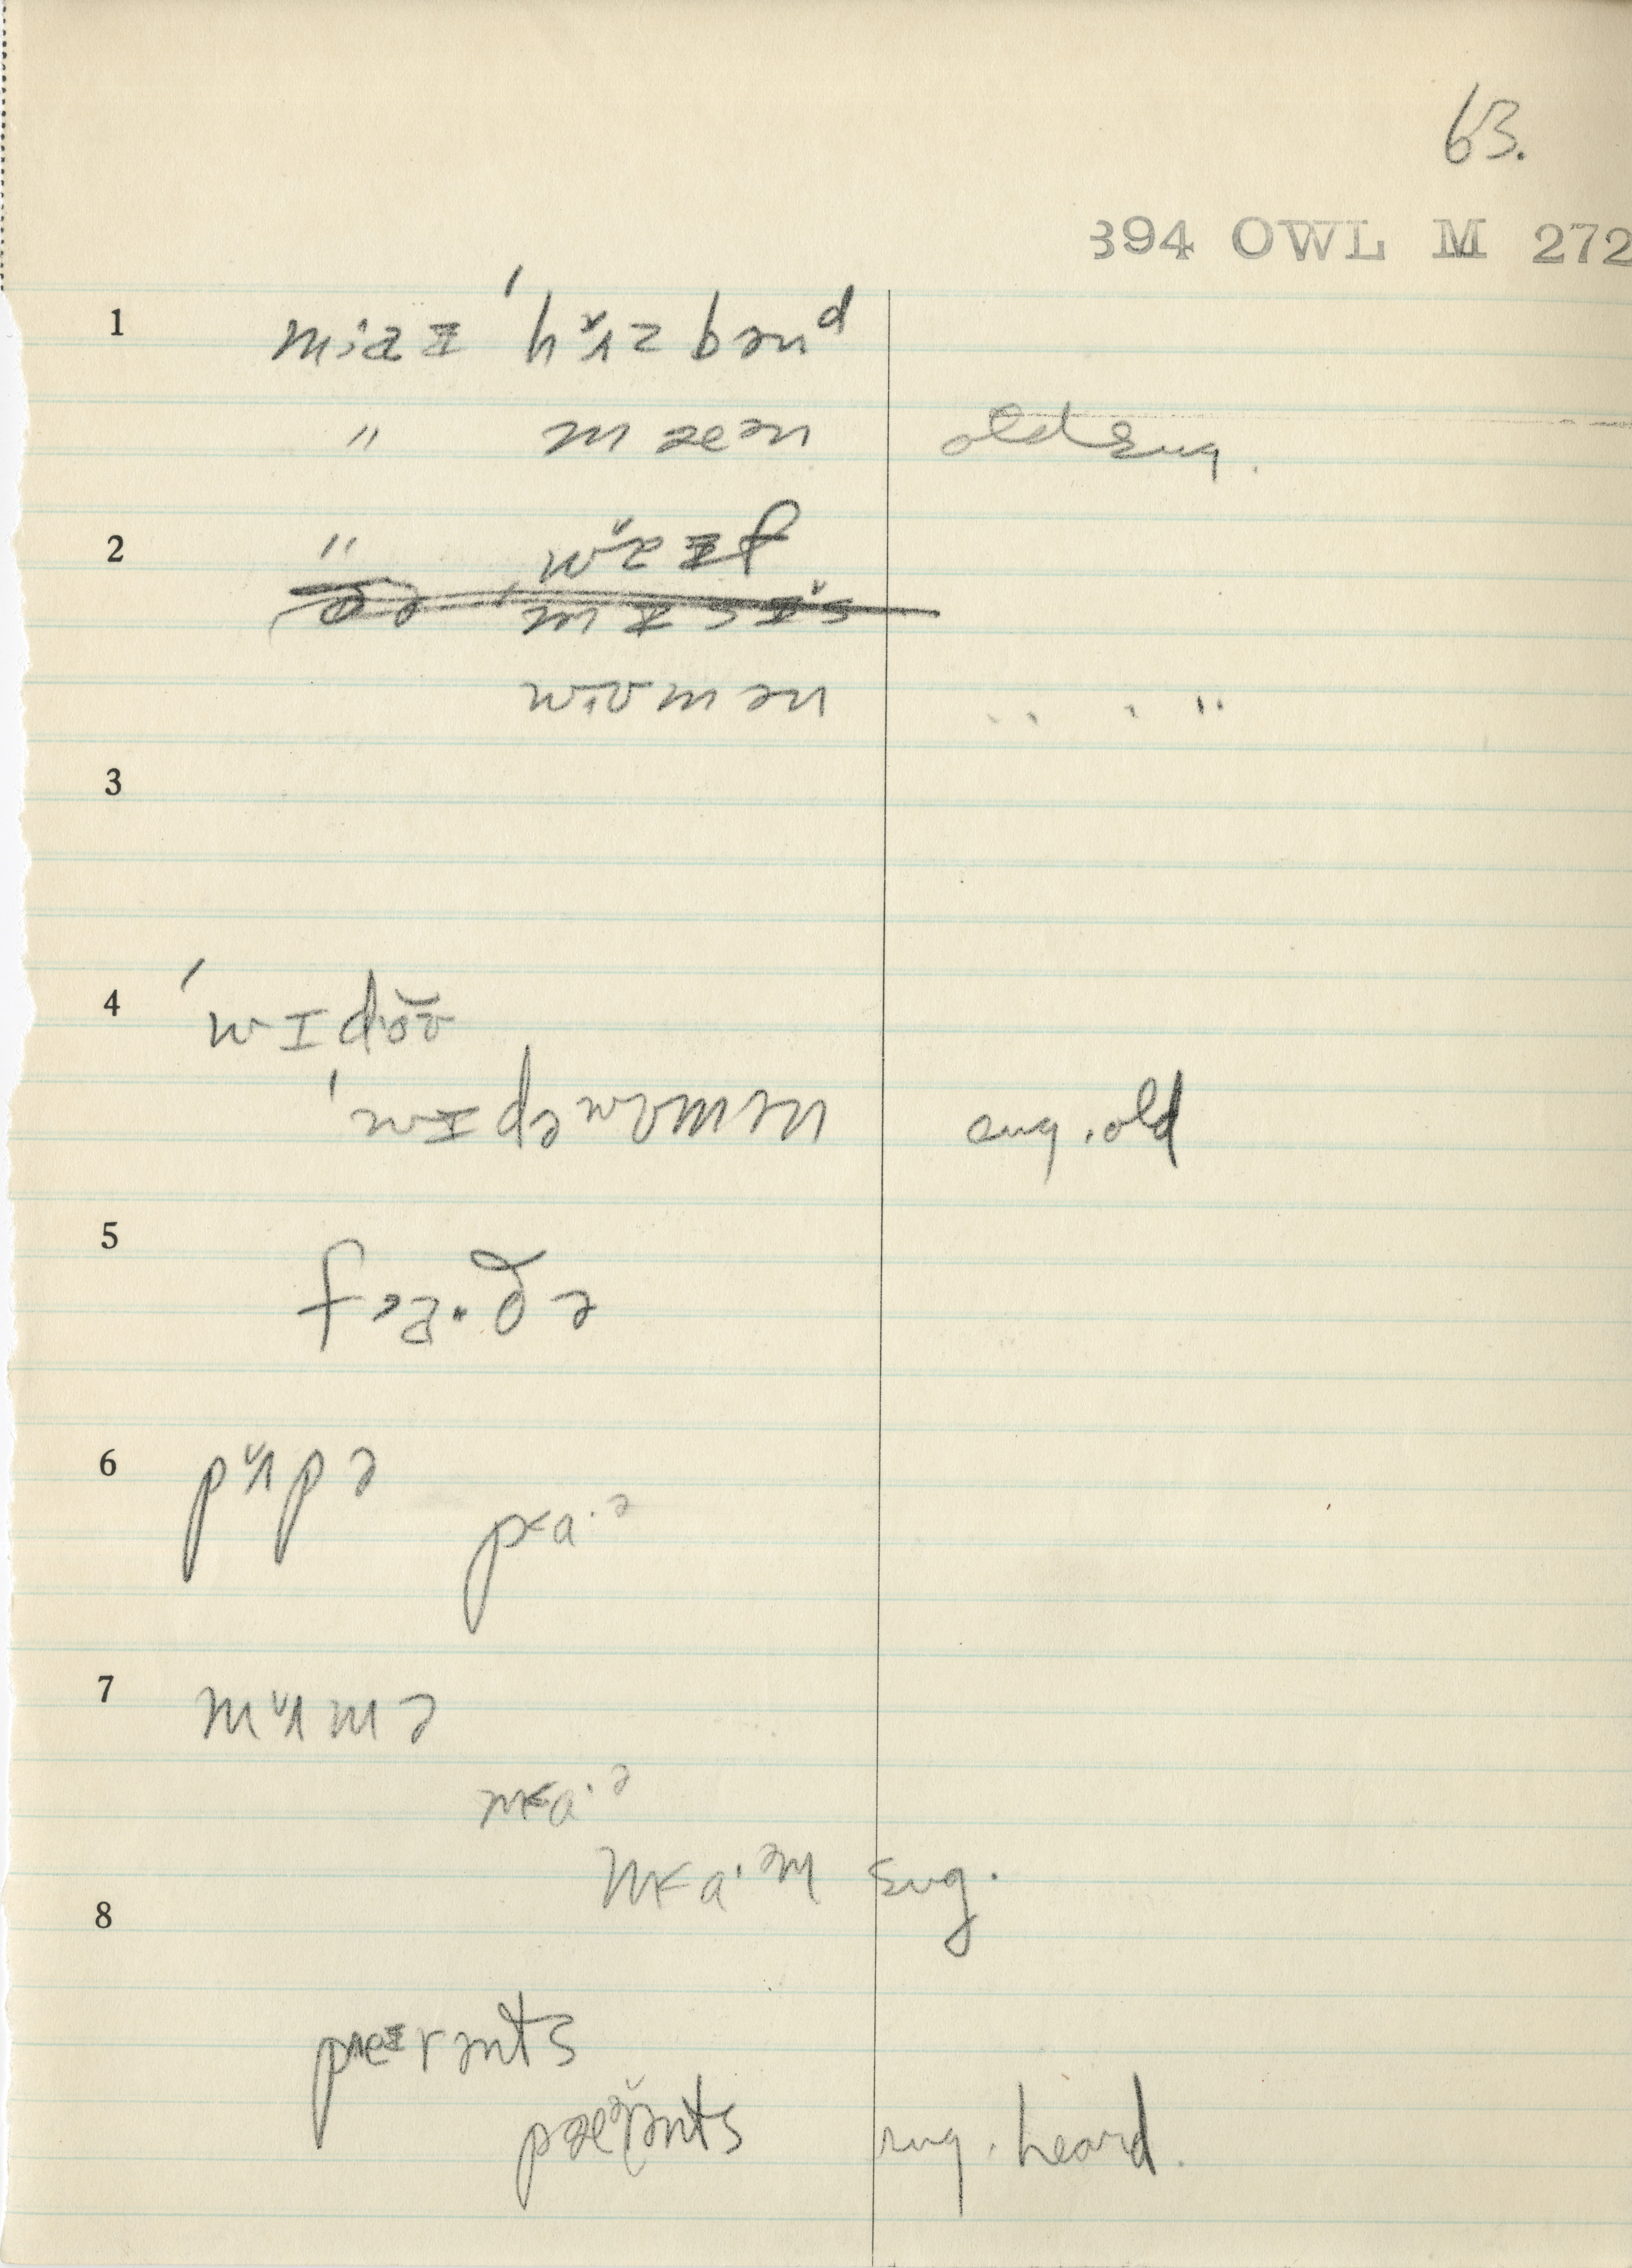 63.
394 OWL M 272
1 m;aɪ 'hʌ̆zbənᵈ
" mæən old sug.
2 " wăɪf
ðə 'mɪsɪ̆s
wʊmən " " "
3
4 'wɪdŏʊ
'wɪdəwʊmən sug. old
5 fa·ðə
6 pʌ̆pə
p<a·ə
7 mʌ̆mə
m<a·ə
m<a·əm sug.
8
pɛɪrənts
pæə̆rənts sug. heard.